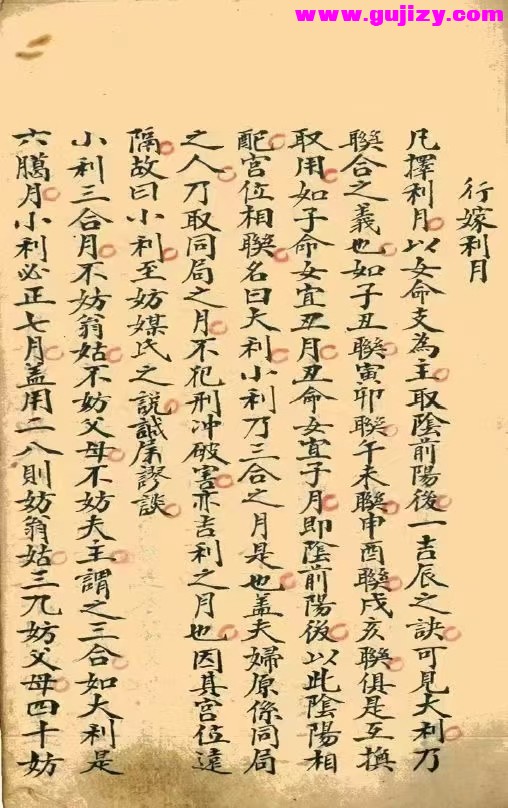 www.gujizy.com
行嫁利月
凡擇利月以女命支為主取陰前陽後一吉辰之訣可見大利乃
聯合之義也如子丑聯寅卯聯午未聯申酉聯戌亥聯俱是互換
取用如子命女宜丑月丑命女宜子月即陰前陽後以此陰陽相
配宮位相聯名曰大利小利乃三合之月是也盖夫婦原係同局
之人乃取同局之月不犯刑冲破害亦吉利之月也因其宮位遠
隔故曰小利至妨媒氏之說誠属謬談
小利三合月不妨翁姑不妨父母不妨夫主謂之三合如大利是
六臈月小利必正七月盖用二八則妨翁姑三九妨父母四十妨